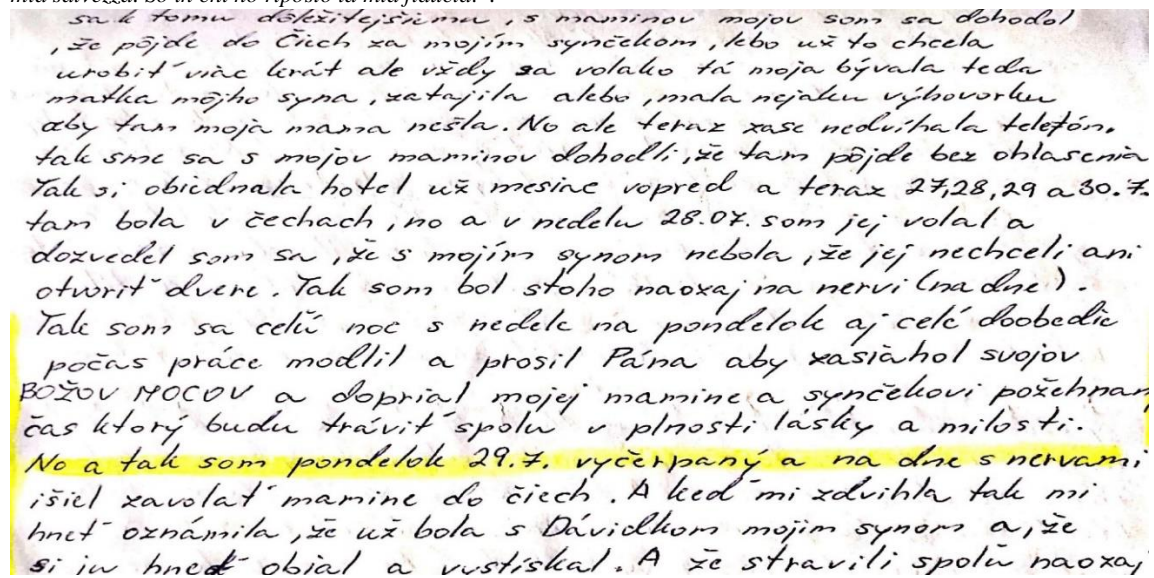 sa k tomu dôležitejšiemu, s maminov mojov som sa dohodol
, že pôjde do Čiech za mojím synčekom, lebo už to chcela
urobiť viac krát ale vždy sa volako tá moja bývala teda
matka môjho syna, zatajila alebo, mala nejaku výhovorku
aby tam moja mama nešla. No ale teraz zase nedvíhala telefón.
tak sme sa s mojov maminov dohodli, že tam pôjde bez ohlasenia
Tak si obiednala hotel už mesiac vopred a teraz 27,28,29 a 30.7.
tam bola v čechach, no a v nedelu 28.07. som jej volal a
dozvedel som sa, že s mojím synom nebola, že jej nechceli ani
otvoriť dvere. Tak som bol stoho naozaj na nervi (na dne).
Tak som sa celú noc s nedele na pondelok aj celé doobedie
počas práce modlil a prosil Pána aby zasiahol svojov
BOŽOV MOCOV a doprial mojej mamine a synčekovi požehnan
čas ktorý budu tráviť spolu v plnosti lásky a milosti.
No a tak som pondelok 29.7. vyčerpaný a na dne s nervami
išiel zavolať mamine do čiech. A keď mi zdvihla tak mi
hneť oznámila, že už bola s Dávidkom mojim synom a, že
si ju hneď objal a vystískal. A že stravili spolu naozaj